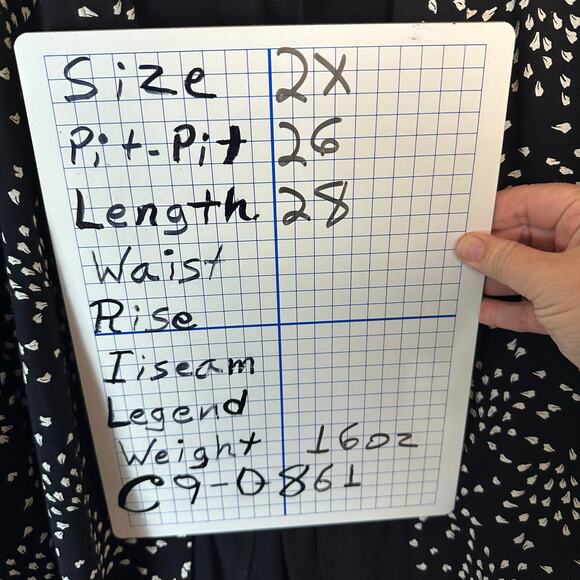 Size 2X
Pit-Pit 26
Length 28
Waist
Rise
Iiseam
Legend
Weight 16oz
C9-0861